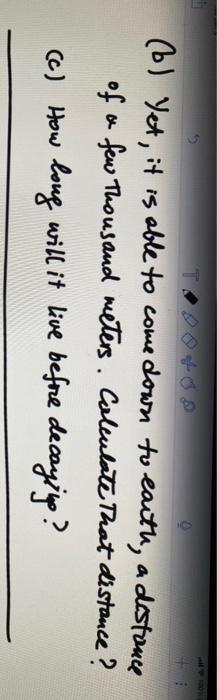 (b) Yet, it is able to come down to earth, a distance
of a few Thousand meters. Calculate That distance?
(c) How long will it live before decaying?